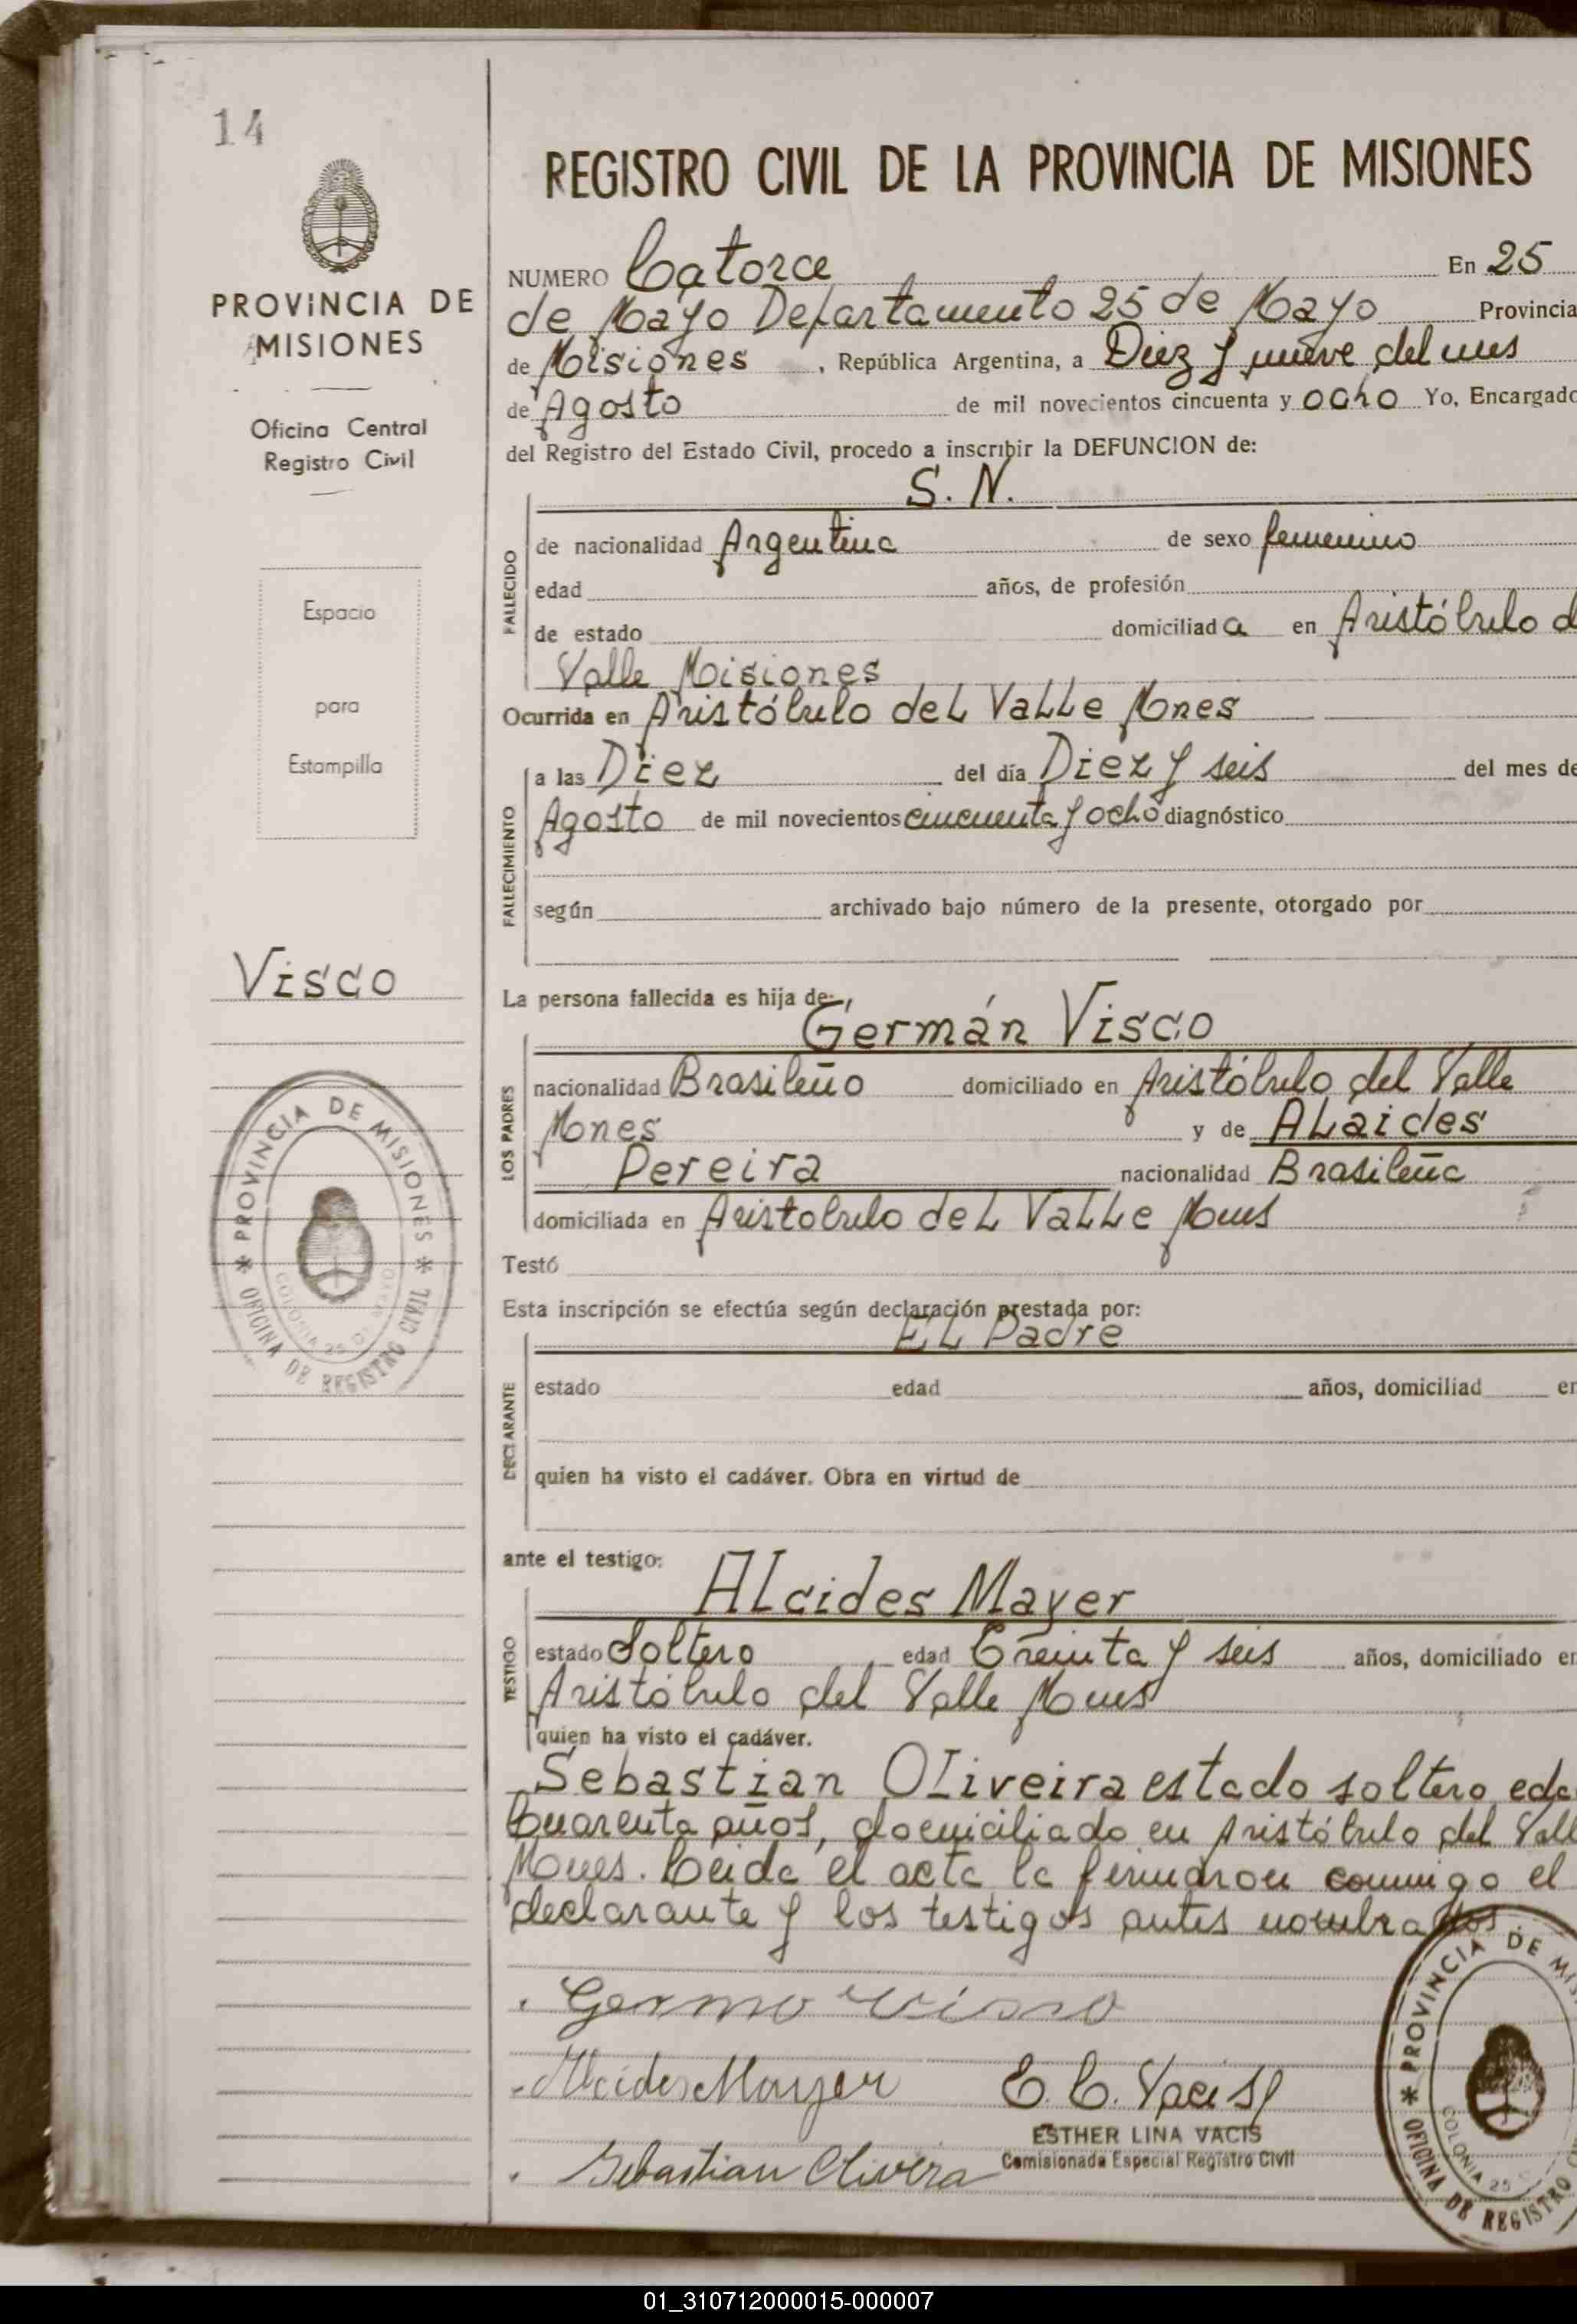 14
PROVINCIA DE
MISIONES
Oficina Central
Registro Civil
Espacio
para
Estampilla
Visco
PROVINCIA DE MISIONES
OFICINA DE REGISTRO CIVIL
COLONIA 25 DE MAYO
REGISTRO CIVIL DE LA PROVINCIA DE MISIONES
NUMERO Catorce En 25
de Mayo Departamento 25 de Mayo Provincia
de Misiones , República Argentina, a Diez y nueve del mes
de Agosto de mil novecientos cincuenta y ocho Yo, Encargado
del Registro del Estado Civil, procedo a inscribir la DEFUNCION de:
S. N.
FALLECIDO
de nacionalidad Argentina de sexo femenino
edad años, de profesión
de estado domiciliada en Aristóbulo d
Valle Misiones
Ocurrida en Aristóbulo del Valle Mnes
FALLECIMIENTO
a las Diez del día Diez y seis del mes de
Agosto de mil novecientos cincuenta y ocho diagnóstico
según archivado bajo número de la presente, otorgado por
La persona fallecida es hija de:
LOS PADRES
Germán Visco
nacionalidad Brasileño domiciliado en Aristóbulo del Valle
Mnes y de ALaides
Pereira nacionalidad Brasileña
domiciliada en Aristobulo del Valle Mnes
Testó
Esta inscripción se efectúa según declaración prestada por:
EL Padre
DECLARANTE
estado edad años, domiciliad en
quien ha visto el cadáver. Obra en virtud de
ante el testigo:
TESTIGO
ALcides Mayer
estado Soltero edad Treinta y seis años, domiciliado en
Aristóbulo del Valle Mnes
quien ha visto el cadáver.
Sebastian OLiveira estado soltero eda
Cuarenta años, domiciliado en Aristóbulo del Vall
Mnes. Leida el acta la firmaron conmigo el
declarante y los testigos antes nombrados.
Germo visco
Alcides Mayer E. L. Vacis
ESTHER LINA VACIS
Comisionada Especial Registro Civil
Sebastian Olivera
PROVINCIA DE MIS
OFICINA DE REGISTRO
COLONIA 25
01_310712000015-000007